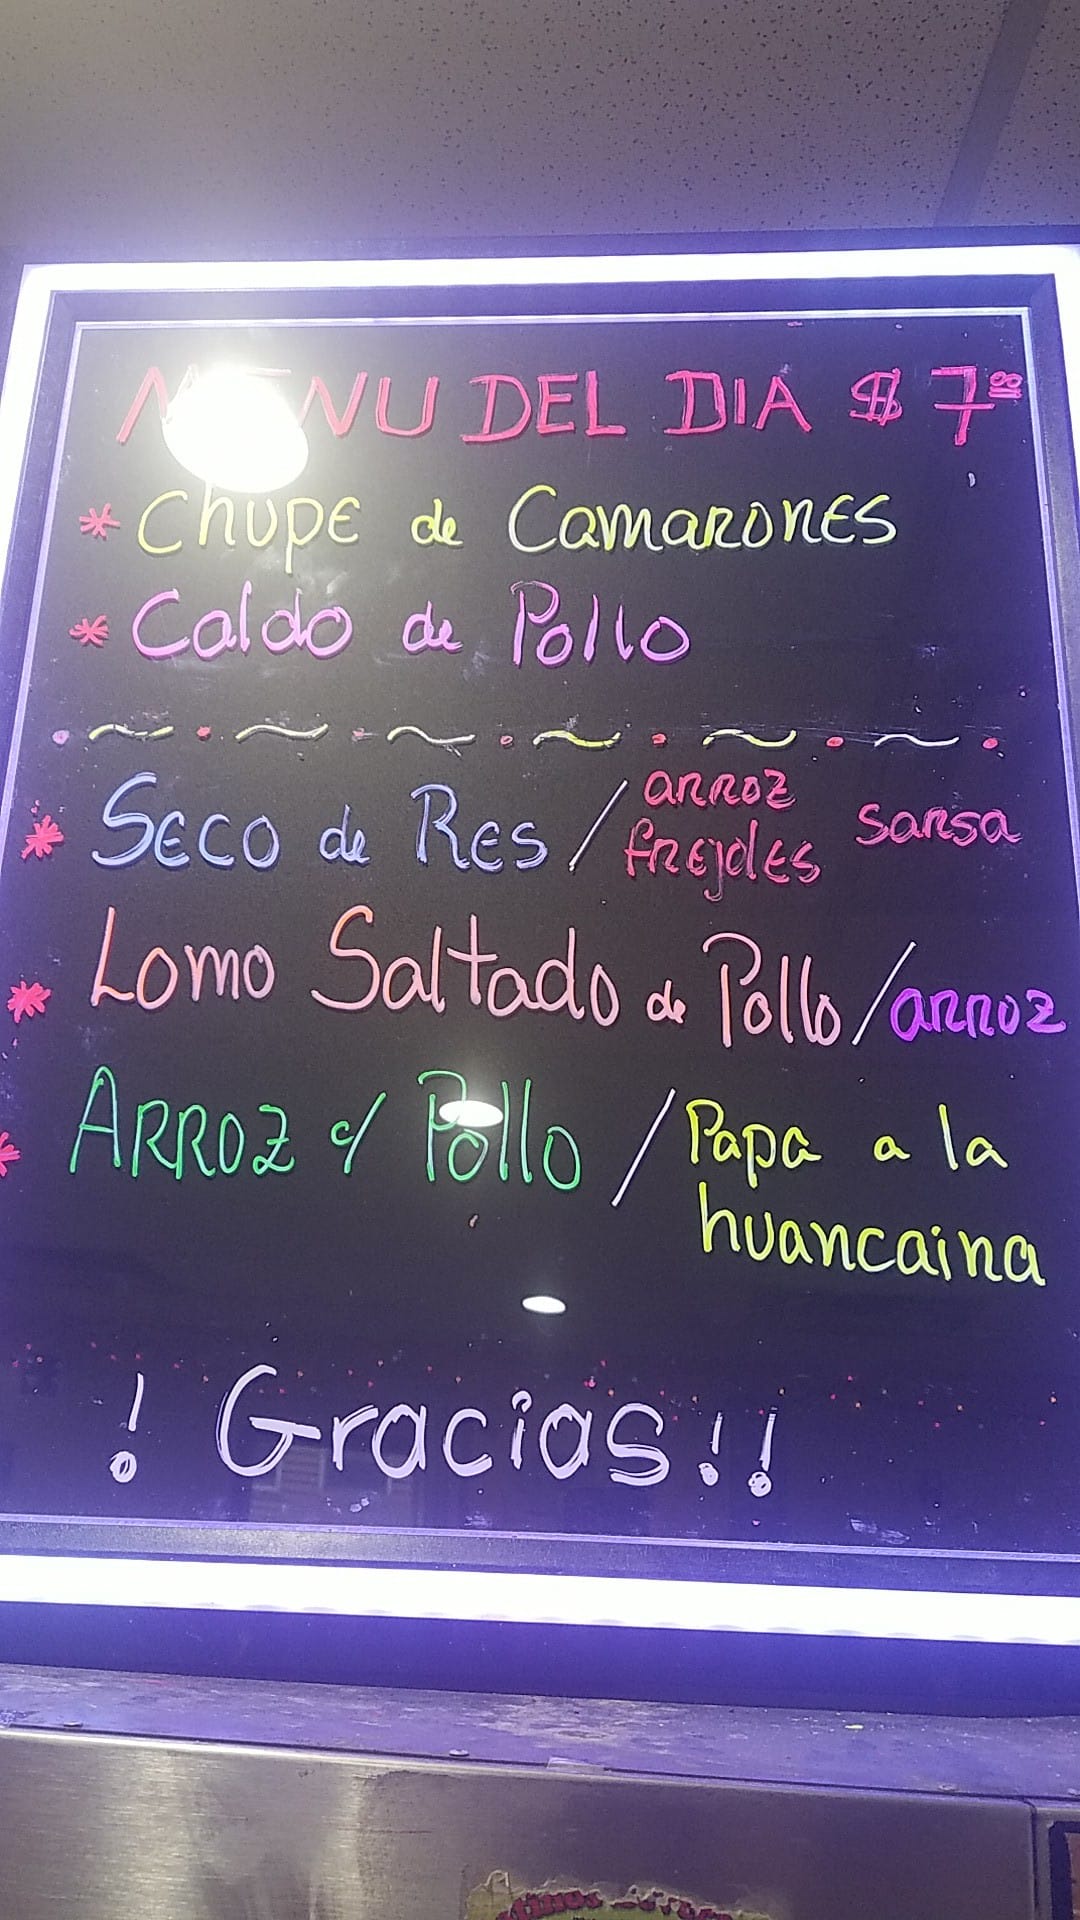 MENU DEL DIA $ 7.00
* Chupe de Camarones
* Caldo de Pollo
* Seco de Res / arroz frejoles sarsa
* Lomo Saltado de Pollo / arroz
* ARROZ c/ Pollo / Papa a la
huancaina
! Gracias!!